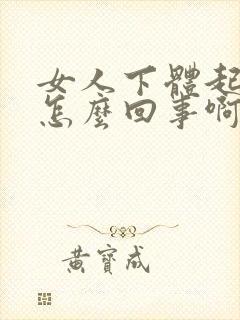 女人下體起
怎麼回事啊
黃寶成